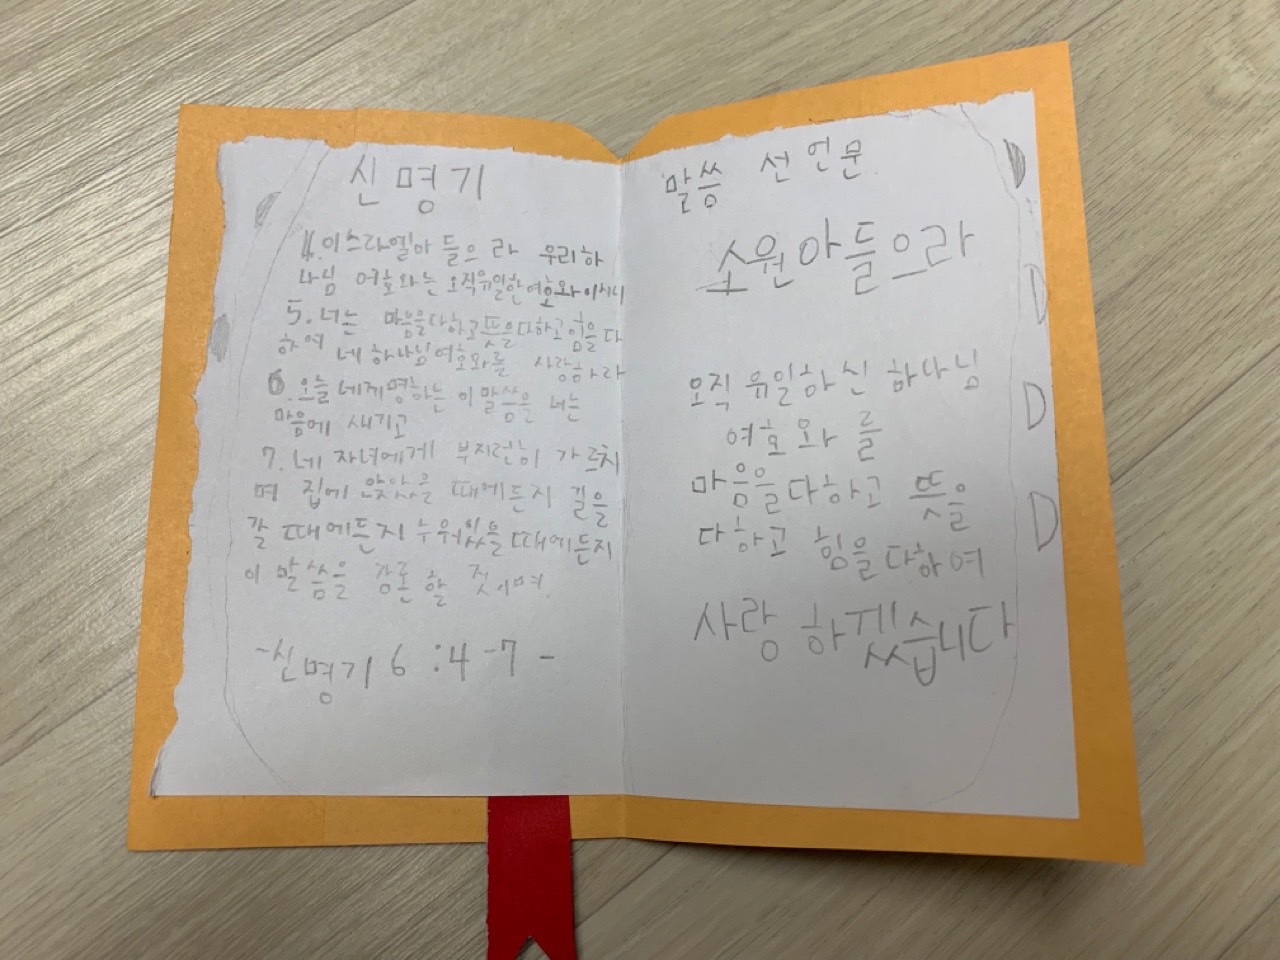 신명기
4. 이스라엘아 들으라 우리 하
나님 여호와는 오직유일한여호와이시니
5. 너는 마음을다하고뜻을다하고힘을다
하여 네하나님여호와를 사랑하라
6. 오늘 네게명하는 이말씀을 너는
마음에 새기고
7. 네 자녀에게 부지런히 가르치
며 집에 앉았을 때에든지 길을
갈 때에든지 누워있을때에든지
이 말씀을 강론 할 것이며.
-신명기 6 : 4 - 7 -
말씀 선언문
소원아들으라
오직 유일하신 하나님
여호와 를
마음을다하고 뜻을
다하고 힘을다하여
사랑 하겠습니다